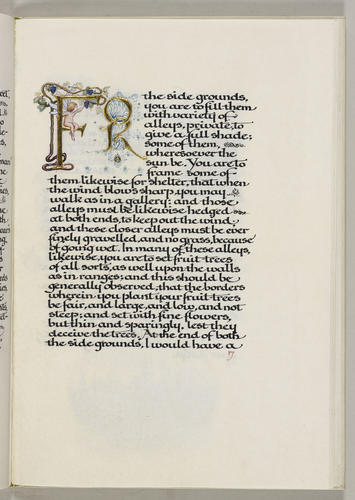 FR
the side grounds,
you are to fill them
with variety of
alleys, private, to
give a full shade;
some of them,
wheresoever the
sun be. You are to
frame some of
them likewise for shelter, that when
the wind blows sharp, you may
walk as in a gallery: and those
alleys must be likewise hedged
at both ends, to keep out the wind;
and these closer alleys must be ever
finely gravelled, and no grass, because
of going wet. In many of these alleys,
likewise, you are to set fruit-trees
of all sorts, as well upon the walls
as in ranges; and this should be
generally observed, that the borders
wherein you plant your fruit-trees
be fair, and large, and low, and not
steep; and set with fine flowers,
but thin and sparingly, lest they
deceive the trees. At the end of both
the side grounds, I would have a
7